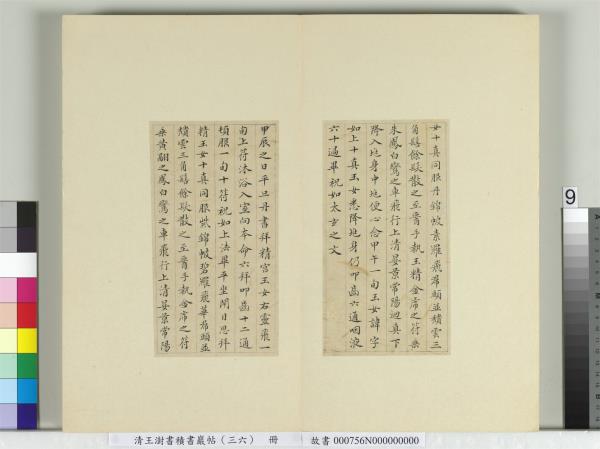 女十真同服丹錦帔素羅飛帬頭並頹雲三
角髻餘髮散之至䣛手執玉精金席之符乘
朱鳳白鸞之車飛行上清晏景常陽迴真下
降入地身中地便心念甲午一旬玉女諱字
如上十真玉女悉降地身仍叩齒六通咽液
六十過畢祝如太玄之文
甲辰之日平旦丹書拜精宮玉女右靈飛一
旬上符沐浴入室向本命六拜叩齒十二通
頓服一旬十符祝如上法畢平坐閉目思拜
精玉女十真同服紫錦帔碧羅飛華帬頭並
頹雲三角髻餘髮散之至䣛手執金席之符
乘黃翮之鳳白鸞之車飛行上清晏景常陽
清王澍書積書巖帖(三六) 冊 故書 000756N000000000
9